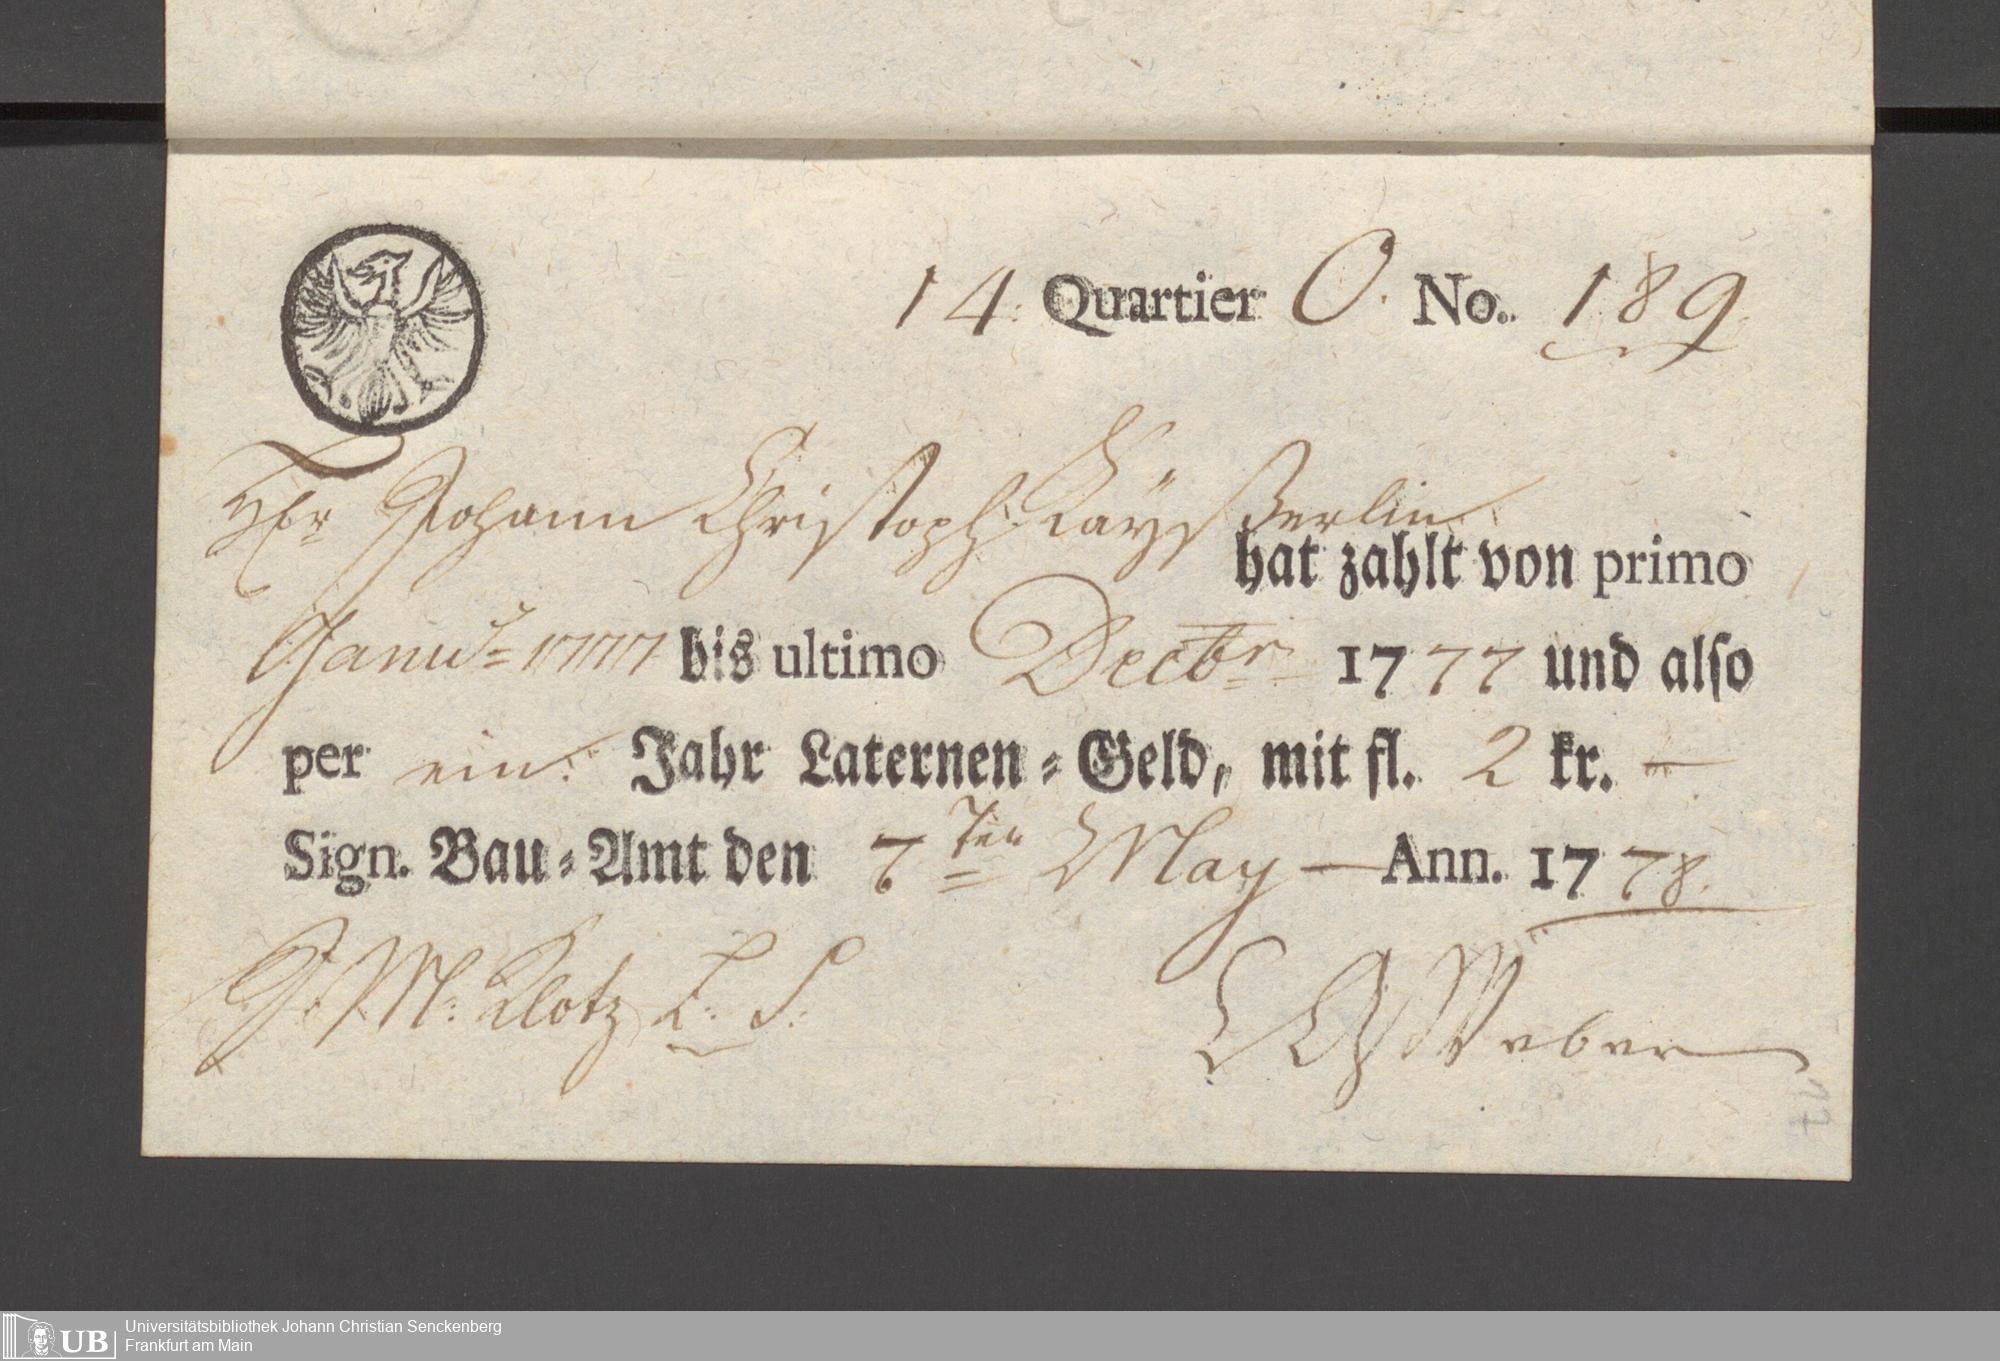 14. Quartier O. No. 189.
Hr Johann Christoph Kayß Berlin
hat zahlt von primo
Janu. 1777 bis ultimo Decbr 1777 und also
per ein Jahr Laternen-Geld, mit fl. 2 kr. —
Sign. Bau-Amt den 7ten May — Ann. 1778.
G. M. Klotz
Weber
17
UB Universitätsbibliothek Johann Christian Senckenberg
Frankfurt am Main